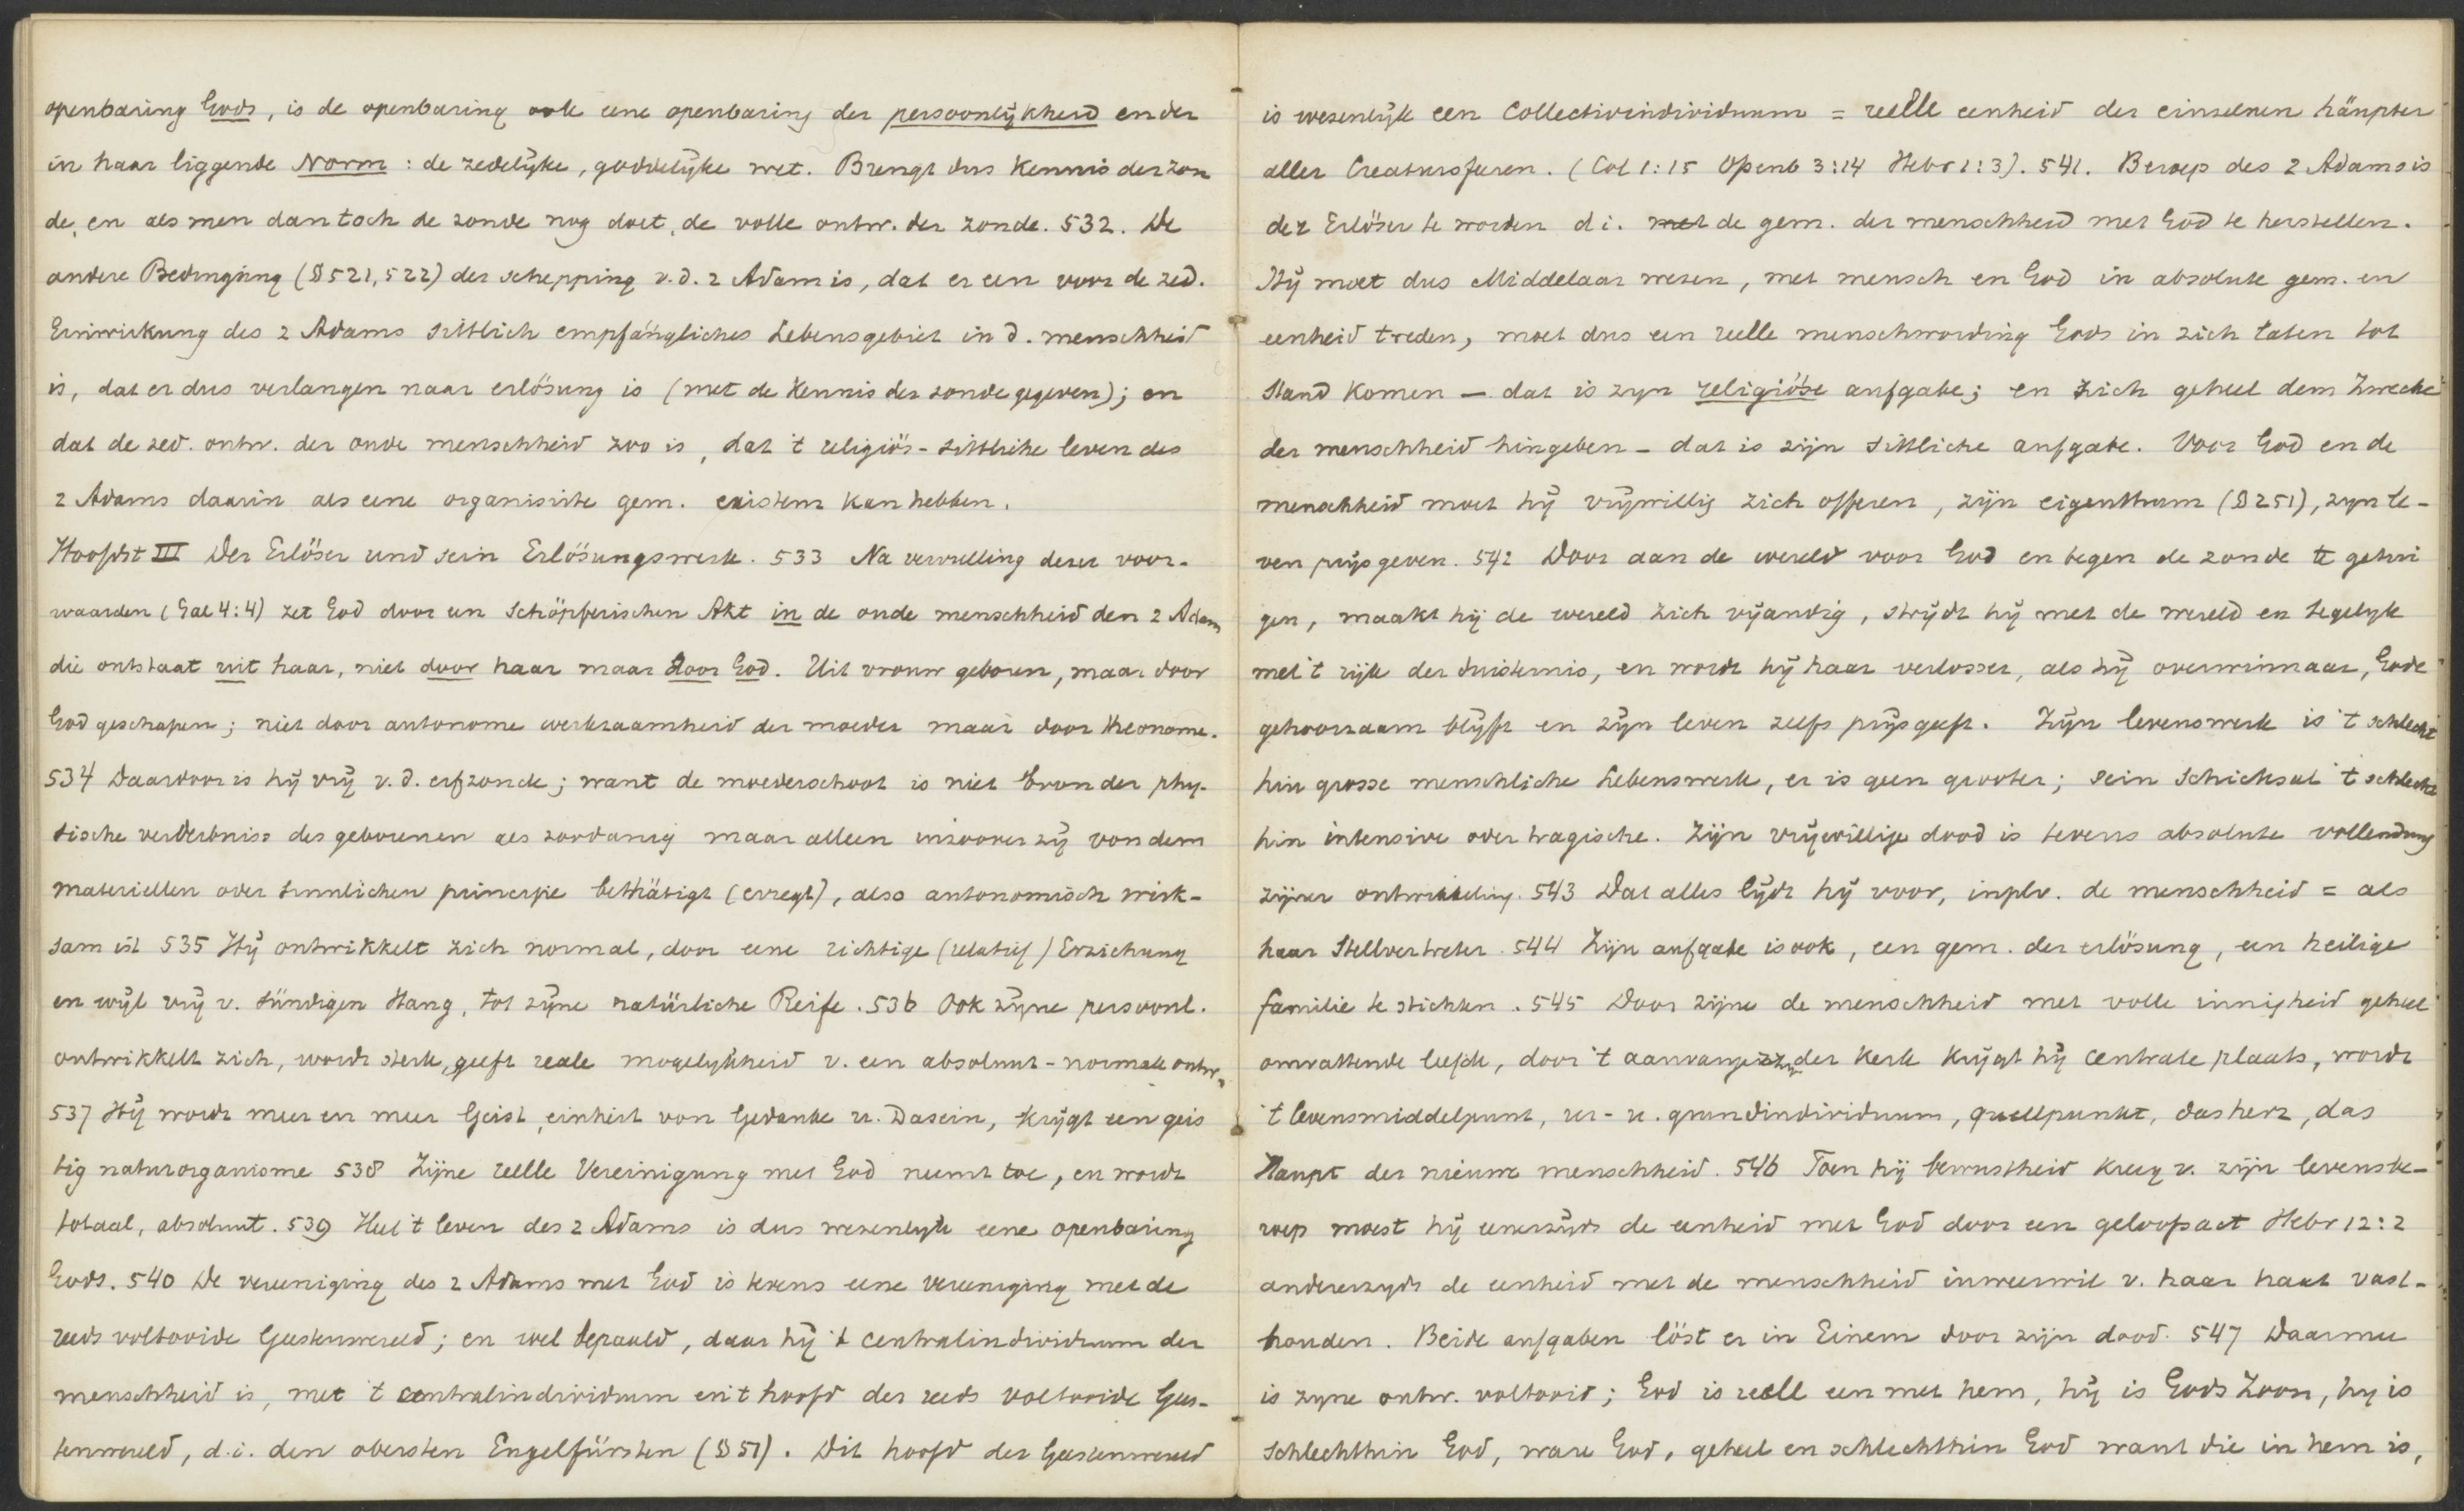 openbaring Gods, is de openbaring ook eene openbaring der persoonlijkheid en der
in haar liggende Norm : de zedelijke, goddelijke wet. Brengt dus Kennis der zon
de, en als men dan toch de zonde nog doet, de volle ontw. der zonde. 532. De
andere Bedingung (§ 521, 522) der schepping v.d. 2 Adam is, dat er een voor de zed.
Einwirkung des 2 Adams sittlich empfängliches Lebensgebiet in d. menschheid
is, dat er dus verlangen naar erlösung is (met de Kennis der zonde gegeven); en
dat de zed. ontw. der oude menschheid zoo is, dat 't religiös-sittliche leven des
2 Adams daarin als eene organisirte gem. existenz kan hebben.
Hoofdst III Der Erlöser und sein Erlösungswerk. 533 Na vervulling dezer voor-
waarden (Gal 4:4) zet God door een Schöpferischen Akt in de oude menschheid den 2 Adam
die ontstaat uit haar, niet door haar maar door God. Uit vrouw geboren, maar door
God geschapen; niet door autonome werkzaamheid der moeder maar door theonome.
534 Daardoor is hij vrij v.d. erfzonde; want de moederschoot is niet bron der phy-
sische verderbniss des geborenen als zoodanig maar alleen inzoover zij von dem
materiellen oder sinnlichen principe bethätigt (erregt), also autonomisch wirk-
sam ist 535 Hij ontwikkelt zich normal, door eene richtige (relatief) Erziehung
en wijl vrij v. sündigen Hang, tot zijne natürliche Reife. 536 Ook zijne persoonl.
ontwikkelt zich, wordt sterk, geeft reale mogelijkheid v. een absoluut-normale ontw.
537 Hij wordt meer en meer Geist, einheit von Gedanke u. Dasein, krijgt een geis
tig naturorganisme 538 Zijne reelle Vereinigung met God neemt toe, en wordt
totaal, absoluut. 539 Heel 't leven des 2 Adams is dus wezenlijk eene openbaring
Gods. 540 De vereeniging des 2 Adams met God is tevens eene vereeniging met de
reeds voltooide Geestenwereld; en wel bepaald, daar hij 't centralindividuum der
menschheid is, met 't centralindividuum en 't hoofd der reeds voltooide Gees-
tenwereld, d.i. den obersten Engelfürsten (§ 51). Dit hoofd der Geestenwereld
is wezenlijk een Collectivindividuum = reelle eenheid der einzelnen häupter
aller Creatursferen. (Col 1:15 Openb 3:14 Hebr 1:3). 541. Beroep des 2 Adams is
der Erlöser te worden d i. met de gem. der menschheid met God te herstellen.
Hij moet dus Middelaar wezen, met mensch en God in absolute gem. en
eenheid treden, moet dus een reelle menschwording Gods in zich laten tot
stand komen — dat is zijn religiöse aufgabe; en zich geheel dem Zwecke
der menschheid hingeben - dat is zijn sittliche aufgabe. Voor God en de
menschheid moet hij vrijwillig zich offeren, zijn eigenthum (§ 251), zijn le-
ven prijsgeven. 542 Door aan de wereld voor God en tegen de zonde te getui
gen, maakt hij de wereld zich vijandig, strijdt hij met de wereld en tegelijk
met 't rijk der duisternis, en wordt hij haar verlosser, als hij overwinnaar, Gode
gehoorzaam blijft en zijn leven zelfs prijsgeeft. Zijn levenswerk is 't schlecht
hin grosse menschliche Lebenswerk, er is geen grooter; sein Schicksal 't schlecht
hin intensive oder tragische. Zijn vrijwillige dood is tevens absolute vollendung
zijner ontwikkeling. 543 Dat alles lijdt hij voor, in plv. de menschheid = als
haar Stellvertreter. 544 Zijn aufgabe is ook, een gem. der erlösung, een heilige
familie te stichten. 545 Door zijne de menschheid met volle innigheid geheel
omvattende liefde, door 't aanvanger zijn der Kerk krijgt hij centrale plaats, wordt
't levensmiddelpunt, ur- u. grundindividuum, quellpunkt, das herz, das
Haupt der nieuwe menschheid. 546 Toen hij bewustheid kreeg v. zijn levensbe-
roep moest hij eenerzijds de eenheid met God door een geloofsact Hebr 12:2
anderezyds de eenheid met de menschheid in weerwil v. haar haat vast-
houden. Beide aufgaben löst er in Einem door zijn dood. 547 Daarmee
is zijne ontw. voltooid; God is reëll een met hem, hij is Gods Zoon, hij is
schlechthin God, ware God, geheel en schlechthin God want die in hem is,